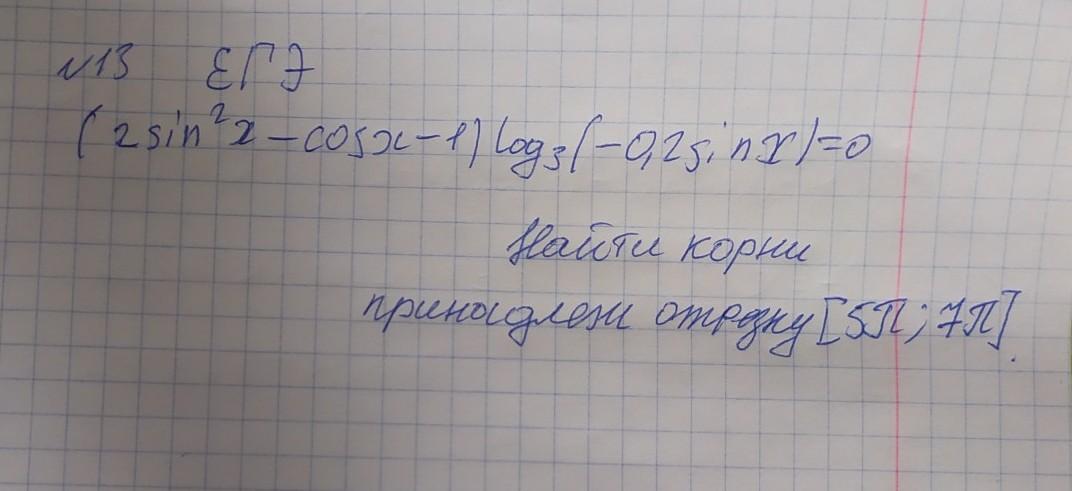 №13 ЕГЭ
(2sin²x-cosx-1)log₃(-0,2sinx)=0
Найти корни
принадлеж отрезку [5π; 7π].